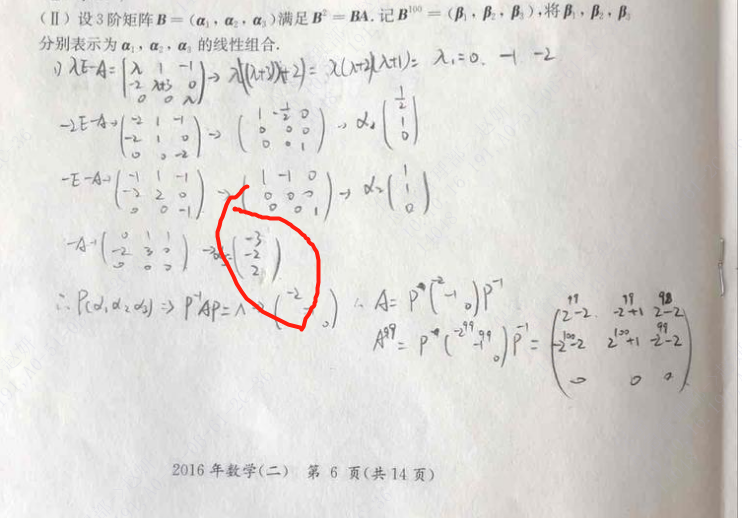 (Ⅱ) 设3阶矩阵 B = (α₁, α₂, α₃) 满足 B² = BA. 记 B¹⁰⁰ = (β₁, β₂, β₃), 将 β₁, β₂, β₃
分别表示为 α₁, α₂, α₃ 的线性组合.
1) λE-A = (λ 1 -1; -2 λ+3 0; 0 0 λ) → λ((λ+3)λ+2) = λ(λ+2)(λ+1) = λ₁=0. -1 -2
-2E-A → (-2 1 -1; -2 1 0; 0 0 -2) → (1 -1/2 0; 0 0 0; 0 0 1) → (1/2; 1; 0)
-E-A → (-1 1 -1; -2 2 0; 0 0 -1) → (1 -1 0; 0 0 0; 0 0 1) → α₂ (1; 1; 0)
-A → (0 1 1; -2 3 0; 0 0 0) → (-3; -2; 2)
∴ P(α₁ α₂ α₃) => P⁻¹AP = Λ → (-2 0) ∴ A = P(-2 -1 0)P⁻¹
A⁹⁹ = P(-2⁹⁹ -1⁹⁹ 0)P⁻¹ = (2⁹⁹-2 -2⁹⁹+1 2-2⁹⁸; -2¹⁰⁰-2 2¹⁰⁰+1 -2⁹⁹-2; 0 0 0)
2016年数学(二) 第 6 页(共14页)